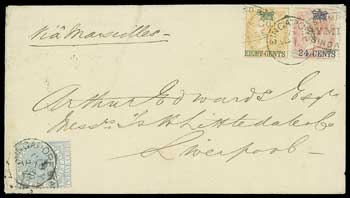 Via Marseilles
EIGHT-CENTS
24 CENTS
SINGAPORE
Arthur Edwards Esqr
Messrs Littledale & Co
Liverpool